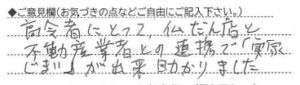 ◆ご意見欄(お気づきの点などご自由にご記入下さい。)
同会者にとって、仏だん店と
不動産業者との連携で「実家
じまい」が出来助かりました